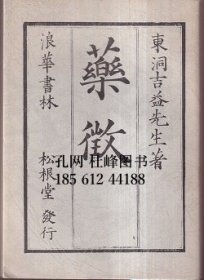 東洞吉益先生著
藥徵
浪華書林 松根堂發行
孔网 杜峰图书
185 612 44188